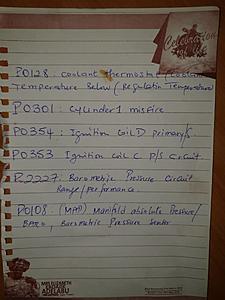 Celebration
of Life
P0128: Coolant Thermostat (Coolant
Temperature Below (Regulation Temperature)
P0301: Cylinder 1 misfire
P0354: Ignition Coil D primary/s.
P0353 Ignition Coil C P/S Circuit
P.2227: Barometric Pressure Circuit
Range/performance.
P0108: (MAP) Manifold absolute Pressure/
BARO, Barometric Pressure Sensor
MRS ELIZABETH
ADELABU